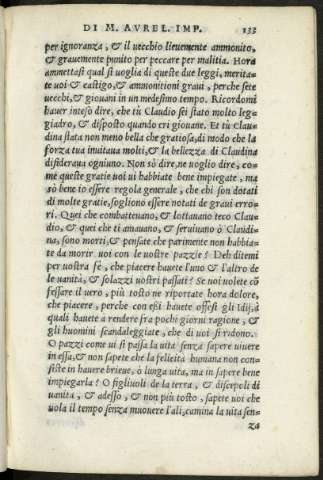 DI M. AVREL. IMP. 133
per ignoranza, & il vecchio lieuemente ammonito,
& grauemente punito per peccare per malitia. Hora
ammettasi qual si uoglia di queste due leggi, merita-
te uoi & castigo, & ammonitioni graui, perche sete
uecchi, & giouani in un medesimo tempo. Ricordomi
hauer inteso dire, che tù Claudio sei stato molto leg-
giadro, & disposto quando eri giouane. Et tù Clau-
dina stata non meno bella che gratiosa, di modo che la
forza tua inuitaua molti, & la bellezza di Claudina
disideraua ogniuno. Non sò dire, ne uoglio dire, co-
me queste gratie uoi ui habbiate bene impiegate, ma
sò bene io essere regola generale, che chi son dotati
di molte gratie, sogliono essere notati de graui erro-
ri. Quei che combatteuano, & lottauano teco Clau-
dio, & quei che ti amauano, & seruiuano ò Claudi-
na, sono morti, & pensate che parimente non habbia-
te da morir uoi con le uostre pazzie? Deh ditemi
per uostra fé, che piacere hauete l'uno & l'altro de
le uanità, & solazzi uostri passati? Se uoi uolete cō
fessare il uero, più tosto ne riportate hora dolore,
che piacere, perche con eßi hauete offesi gli Idij, à
quali hauete a rendere fra pochi giorni ragione, &
gli huomini scandaleggiate, che di uoi si ridono.
O pazzi come ui si passa la uita senza sapere uiuere
in essa, & non sapete che la felicità humana non con-
siste in hauere brieue, ò lunga uita, ma in sapere bene
impiegarla! O figliuoli de la terra, & discepoli di
uanità, & adesso, & non più tosto, sapete uoi che
uola il tempo senza muouere l'ali, camina la uita sen-
za